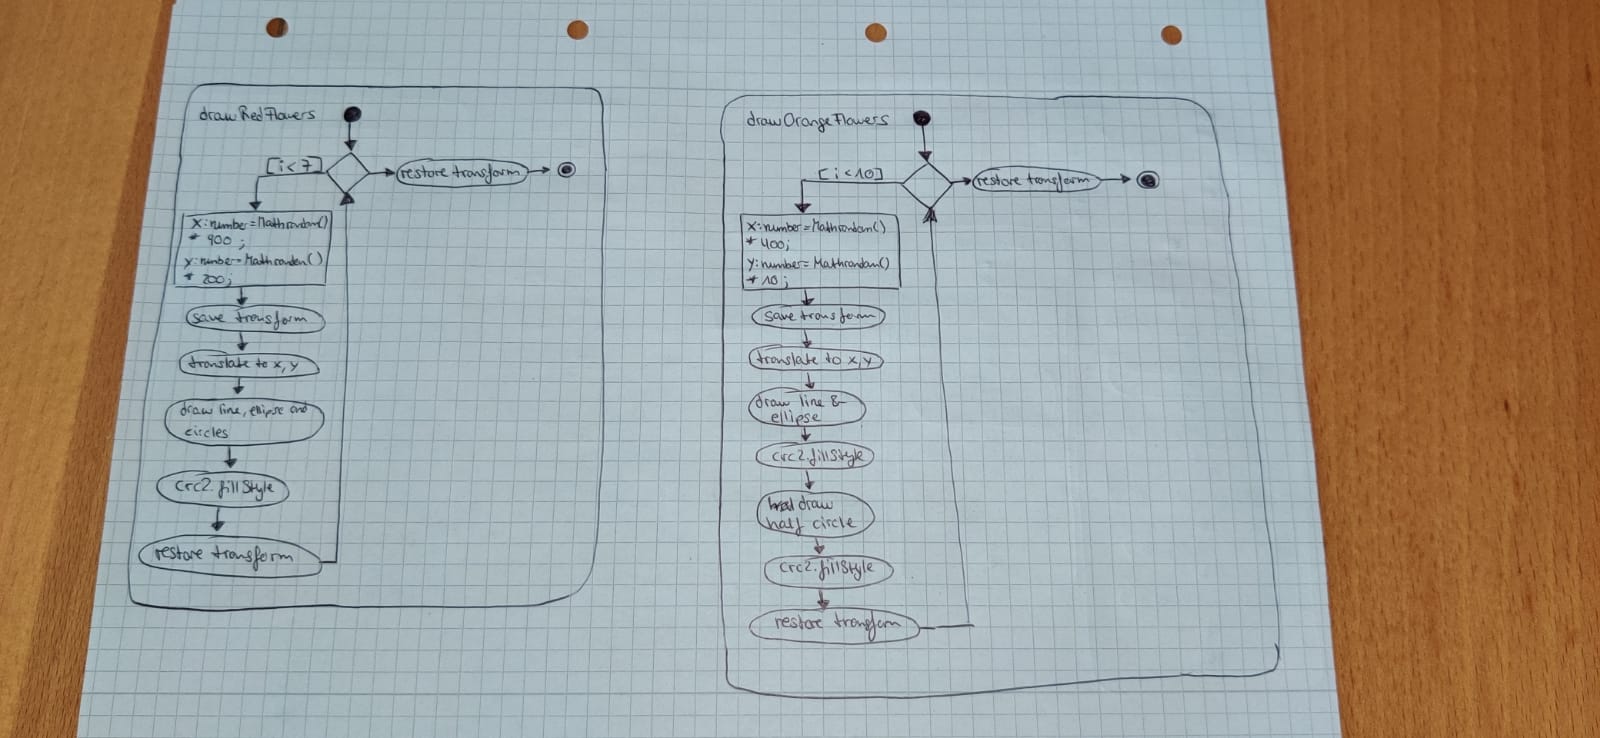 drawRedFlowers
[i<7]
restore transform
X:number=Mathrandom()
* 900;
y:number=Mathrandom()
* 200;
save transform
translate to x,y
draw line, ellipse and
circles
crc2.fillStyle
restore transform
drawOrangeFlowers
[i<10]
restore transform
X:number=Mathrandom()
* 400;
Y:number=Mathrandom()
* 10;
save transform
translate to x,y
draw line &
ellipse
crc2.fillStyle
draw
half circle
crc2.fillStyle
restore transform